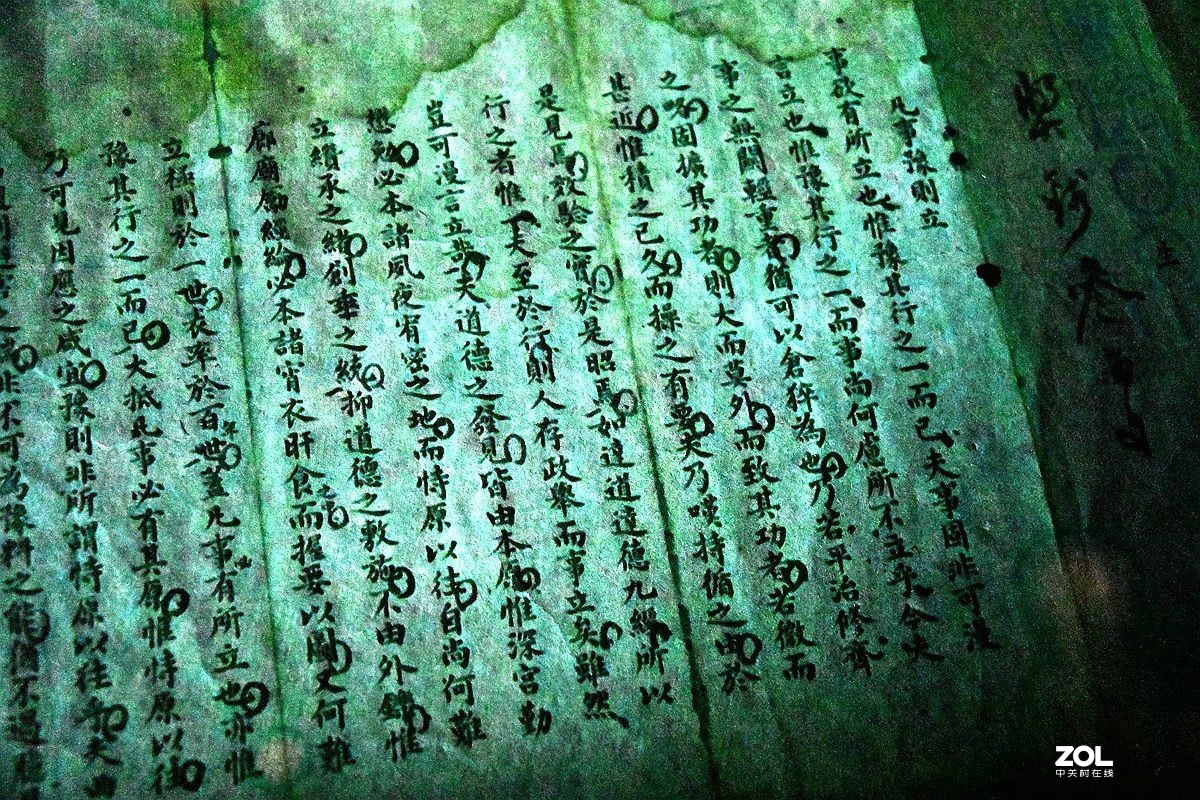 上
凡事豫則立
事故有所立也惟豫其行之一而已夫事固非可漫
言立也惟豫其行之一而事尚何慮所不立乎今夫
事之無關輕重者猶可以倉猝為也乃若平治修齊
之呪固擴其功者則大而莫外而致其功者若微而
甚近惟積之已久而操之有要夫乃嘆持循之由於
是見焉效驗之實於是昭焉如達道達德九經所以
行之者惟一夫至於行則人存政舉而事立矣雖然
豈可漫言立哉夫道德之發見皆由本原惟深宮勤
懋勉必本諸夙夜宥密之地而恃原以往自尚何難
立纘承之緒創垂之統抑道德之敷施不由外鑠惟
廊廟經綸必本諸宵衣旰食而握要以圖又何難
立極則於一世表率於百世蓋凡事有所立也亦惟
豫其行之一而已大抵凡事必有其原惟恃原以往
乃可見因應之咸宜豫則非所謂恃原以往乎夫由
非不可為豫料之能循不過
ZOL
中关村在线